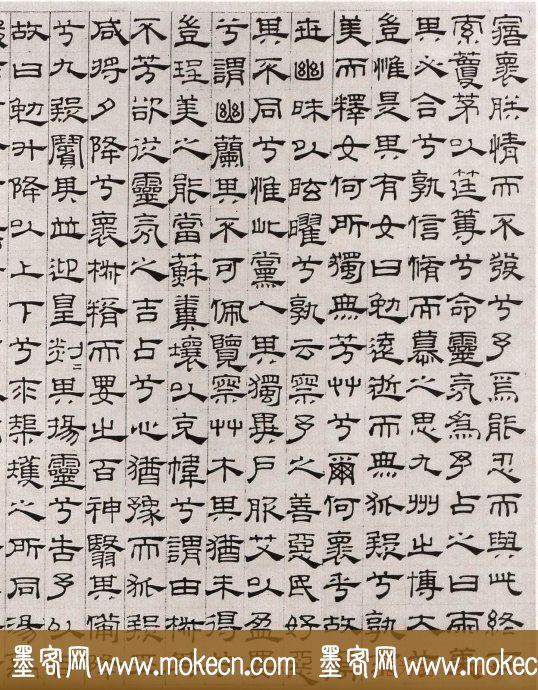 寤懷朕情而不發兮予焉能忍而與此終
索藑茅以筳篿兮命靈氛為予占之曰兩美
其必合兮孰信脩而慕之思九州之博大
豈惟是其有女曰勉遠逝而無狐疑兮孰
美而釋女何所獨無芳艸兮爾何懷乎故
世幽昧以眩曜兮孰云察予之善惡民好惡
其不同兮惟此黨人其獨異戶服艾以盈要
兮謂幽蘭其不可佩覽察艸木其猶未得
豈珵美之能當蘇糞壤以充幃兮謂申椒
不芳欲從靈氛之吉占兮心猶豫而狐疑
咸將夕降兮懷椒糈而要之百神翳其備降
兮九疑繽其並迎皇剡〻其揚靈兮告予以
故曰勉升降以上下兮求榘矱之所同湯
墨客网 www.mokecn.com 墨客网 www.mokecn.com